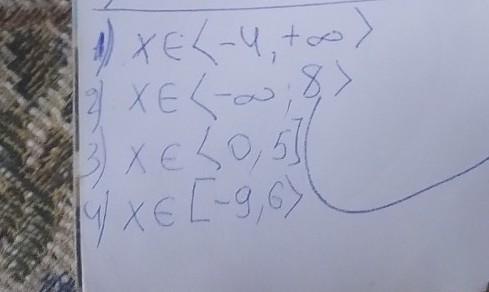 1) x∈⟨-4,+∞⟩
2) x∈⟨-∞;8⟩
3) x∈⟨0,5]
4) x∈[-9,6⟩